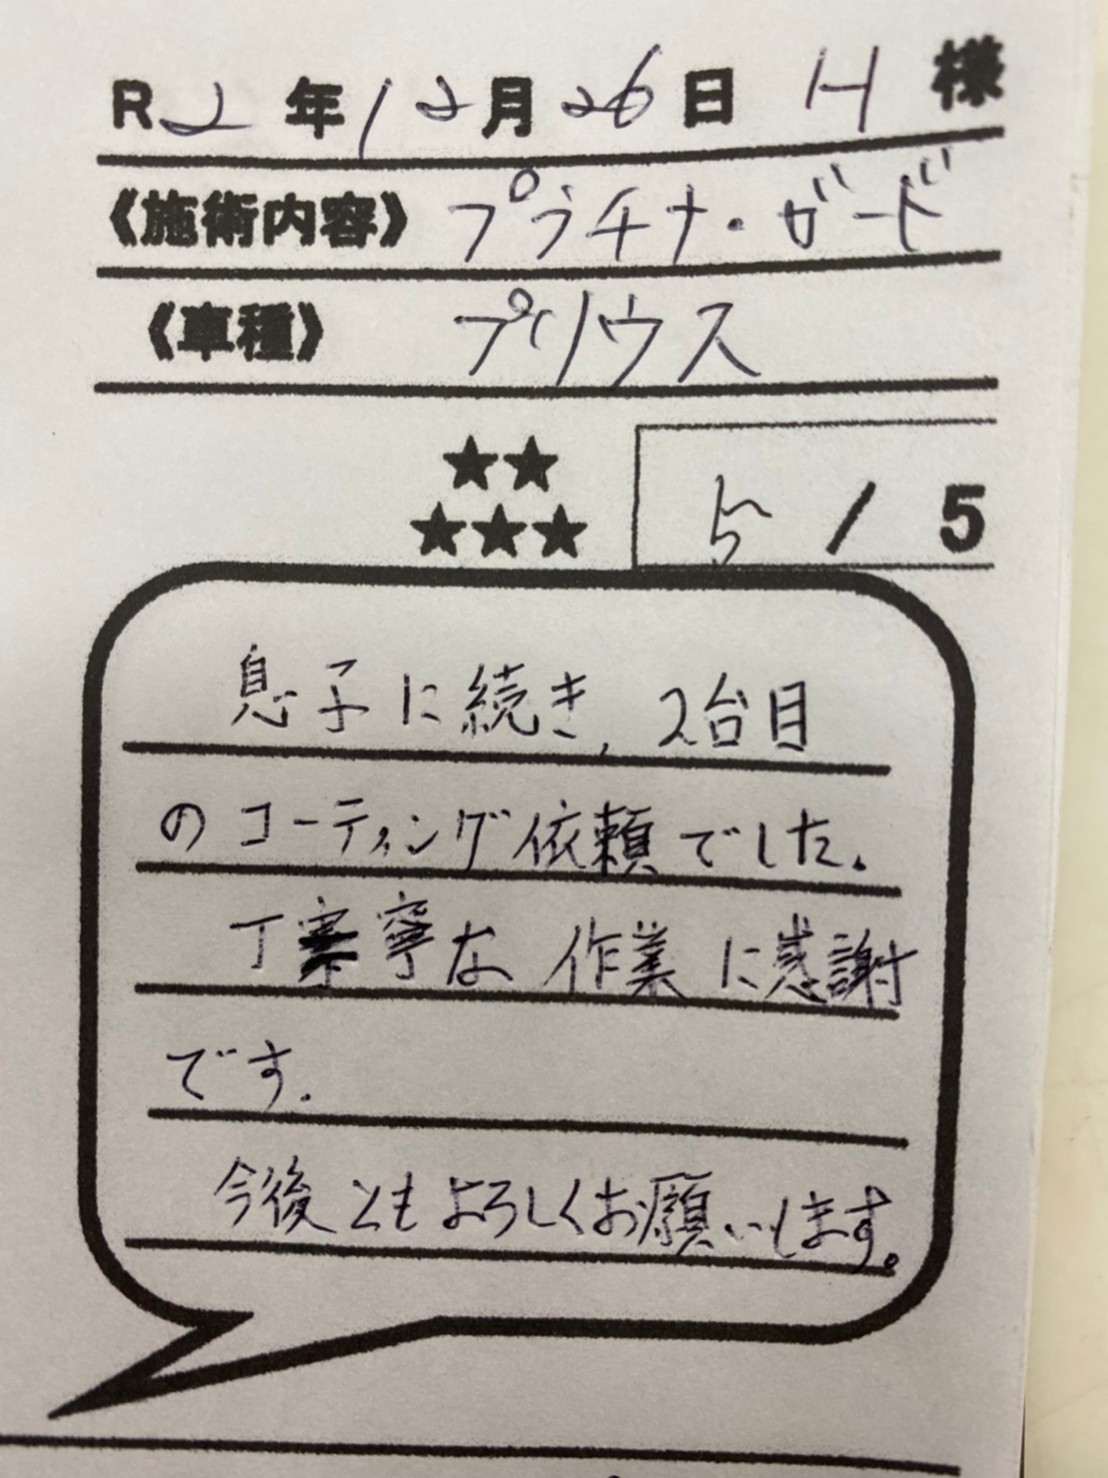 R2年12月26日 H 様
《施術内容》 プラチナ・ガード
《車種》 プリウス
★★
★★★ 5 / 5
息子に続き、2台目
のコーティング依頼でした。
丁寧な 作業に感謝
です.
今後ともよろしくお願いします。